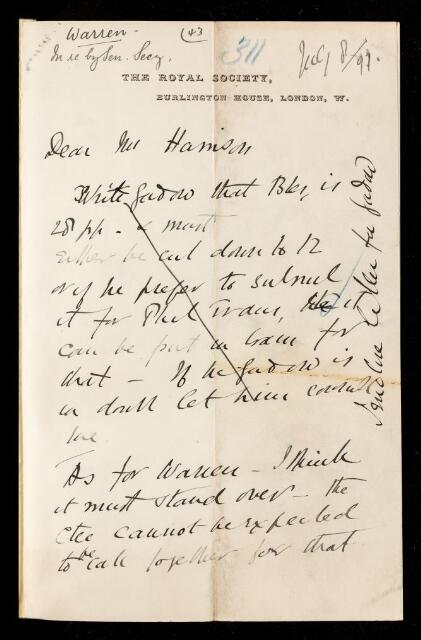 Warren.
(43)
311
July 8/97.
In re by Sen. Secy.
THE ROYAL SOCIETY,
BURLINGTON HOUSE, LONDON, W.
Dear Mr Harrison
Write Gadow that Bles is
28 pp. & must
either be cut down to 12
or if he prefer to submit
it for Phil Trans, it
can be put in train for
that — If he Gadow is
in doubt let him consult
me.
As for Warren — I think
it must stand over — the
Ctee cannot be expected
to be call together for that
letter for Gadow